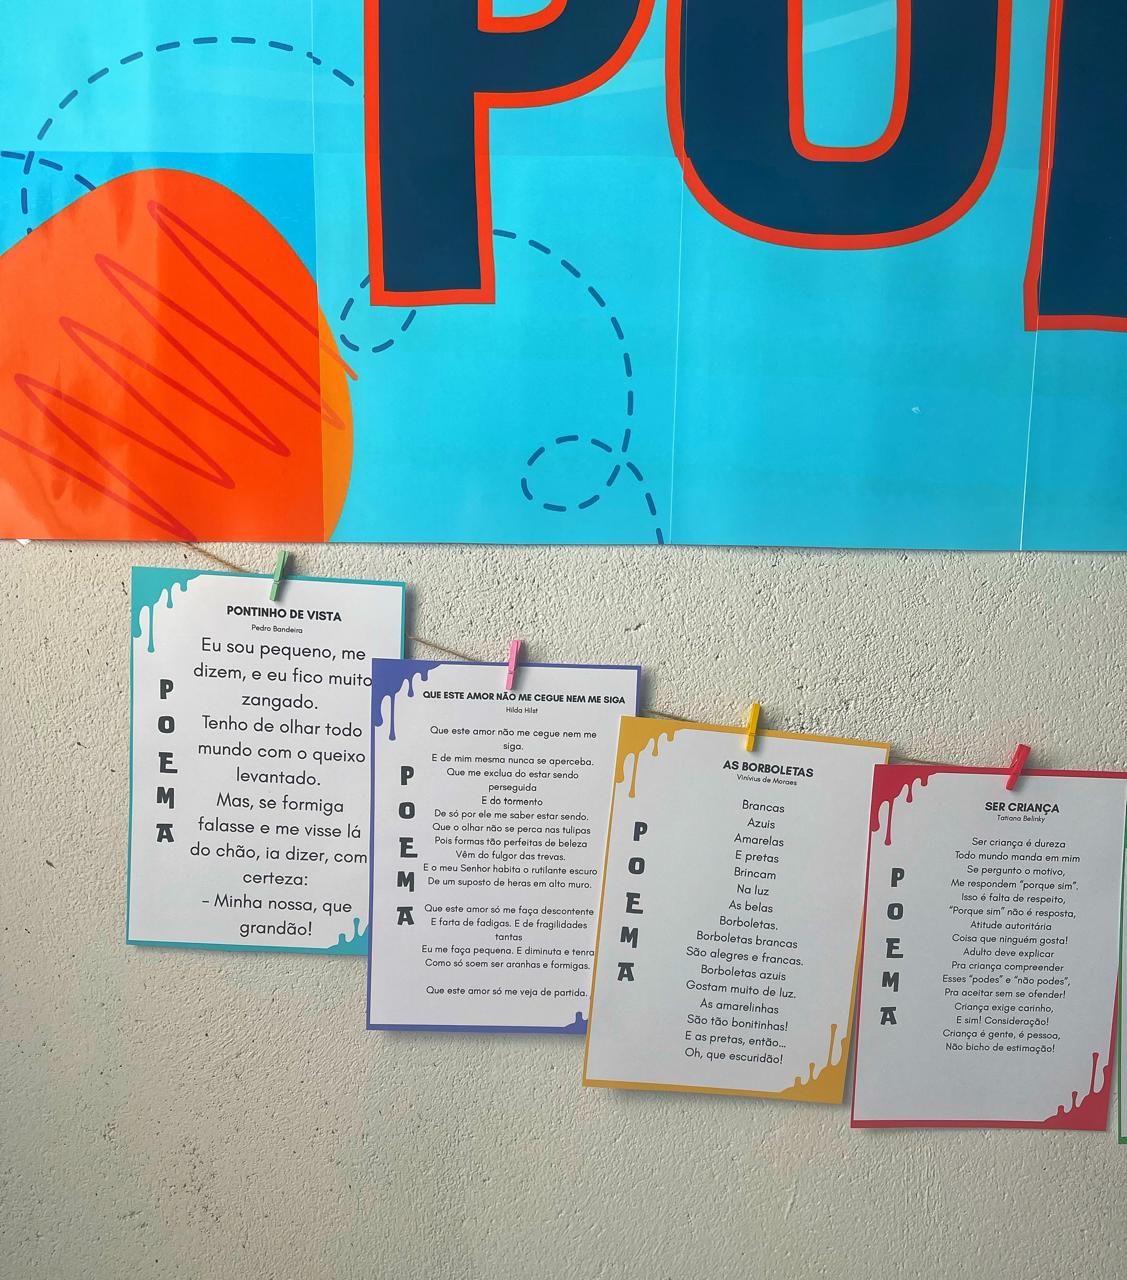 PO
PONTINHO DE VISTA
Pedro Bandeira
Eu sou pequeno, me
dizem, e eu fico muito
zangado.
Tenho de olhar todo
mundo com o queixo
levantado.
Mas, se formiga
falasse e me visse lá
do chão, ia dizer, com
certeza:
- Minha nossa, que
grandão!
POEMA
QUE ESTE AMOR NÃO ME CEGUE NEM ME SIGA
Hilda Hilst
Que este amor não me cegue nem me
siga.
E de mim mesma nunca se aperceba.
Que me exclua do estar sendo
perseguida
E do tormento
De só por ele me saber estar sendo.
Que o olhar não se perca nas tulipas
Pois formas tão perfeitas de beleza
Vêm do fulgor das trevas.
E o meu Senhor habita o rutilante escuro
De um suposto de heras em alto muro.
Que este amor só me faça descontente
E farta de fadigas. E de fragilidades
tantas
Eu me faça pequena. E diminuta e tenra
Como só soem ser aranhas e formigas.
Que este amor só me veja de partida.
POEMA
AS BORBOLETAS
Vinivius de Moraes
Brancas
Azuis
Amarelas
E pretas
Brincam
Na luz
As belas
Borboletas.
Borboletas brancas
São alegres e francas.
Borboletas azuis
Gostam muito de luz.
As amarelinhas
São tão bonitinhas!
E as pretas, então...
Oh, que escuridão!
POEMA
SER CRIANÇA
Tatiana Belinky
Ser criança é dureza
Todo mundo manda em mim
Se pergunto o motivo,
Me respondem "porque sim".
Isso é falta de respeito,
"Porque sim" não é resposta,
Atitude autoritária
Coisa que ninguém gosta!
Adulto deve explicar
Pra criança compreender
Esses "podes" e "não podes",
Pra aceitar sem se ofender!
Criança exige carinho,
E sim! Consideração!
Criança é gente, é pessoa,
Não bicho de estimação!
POEMA